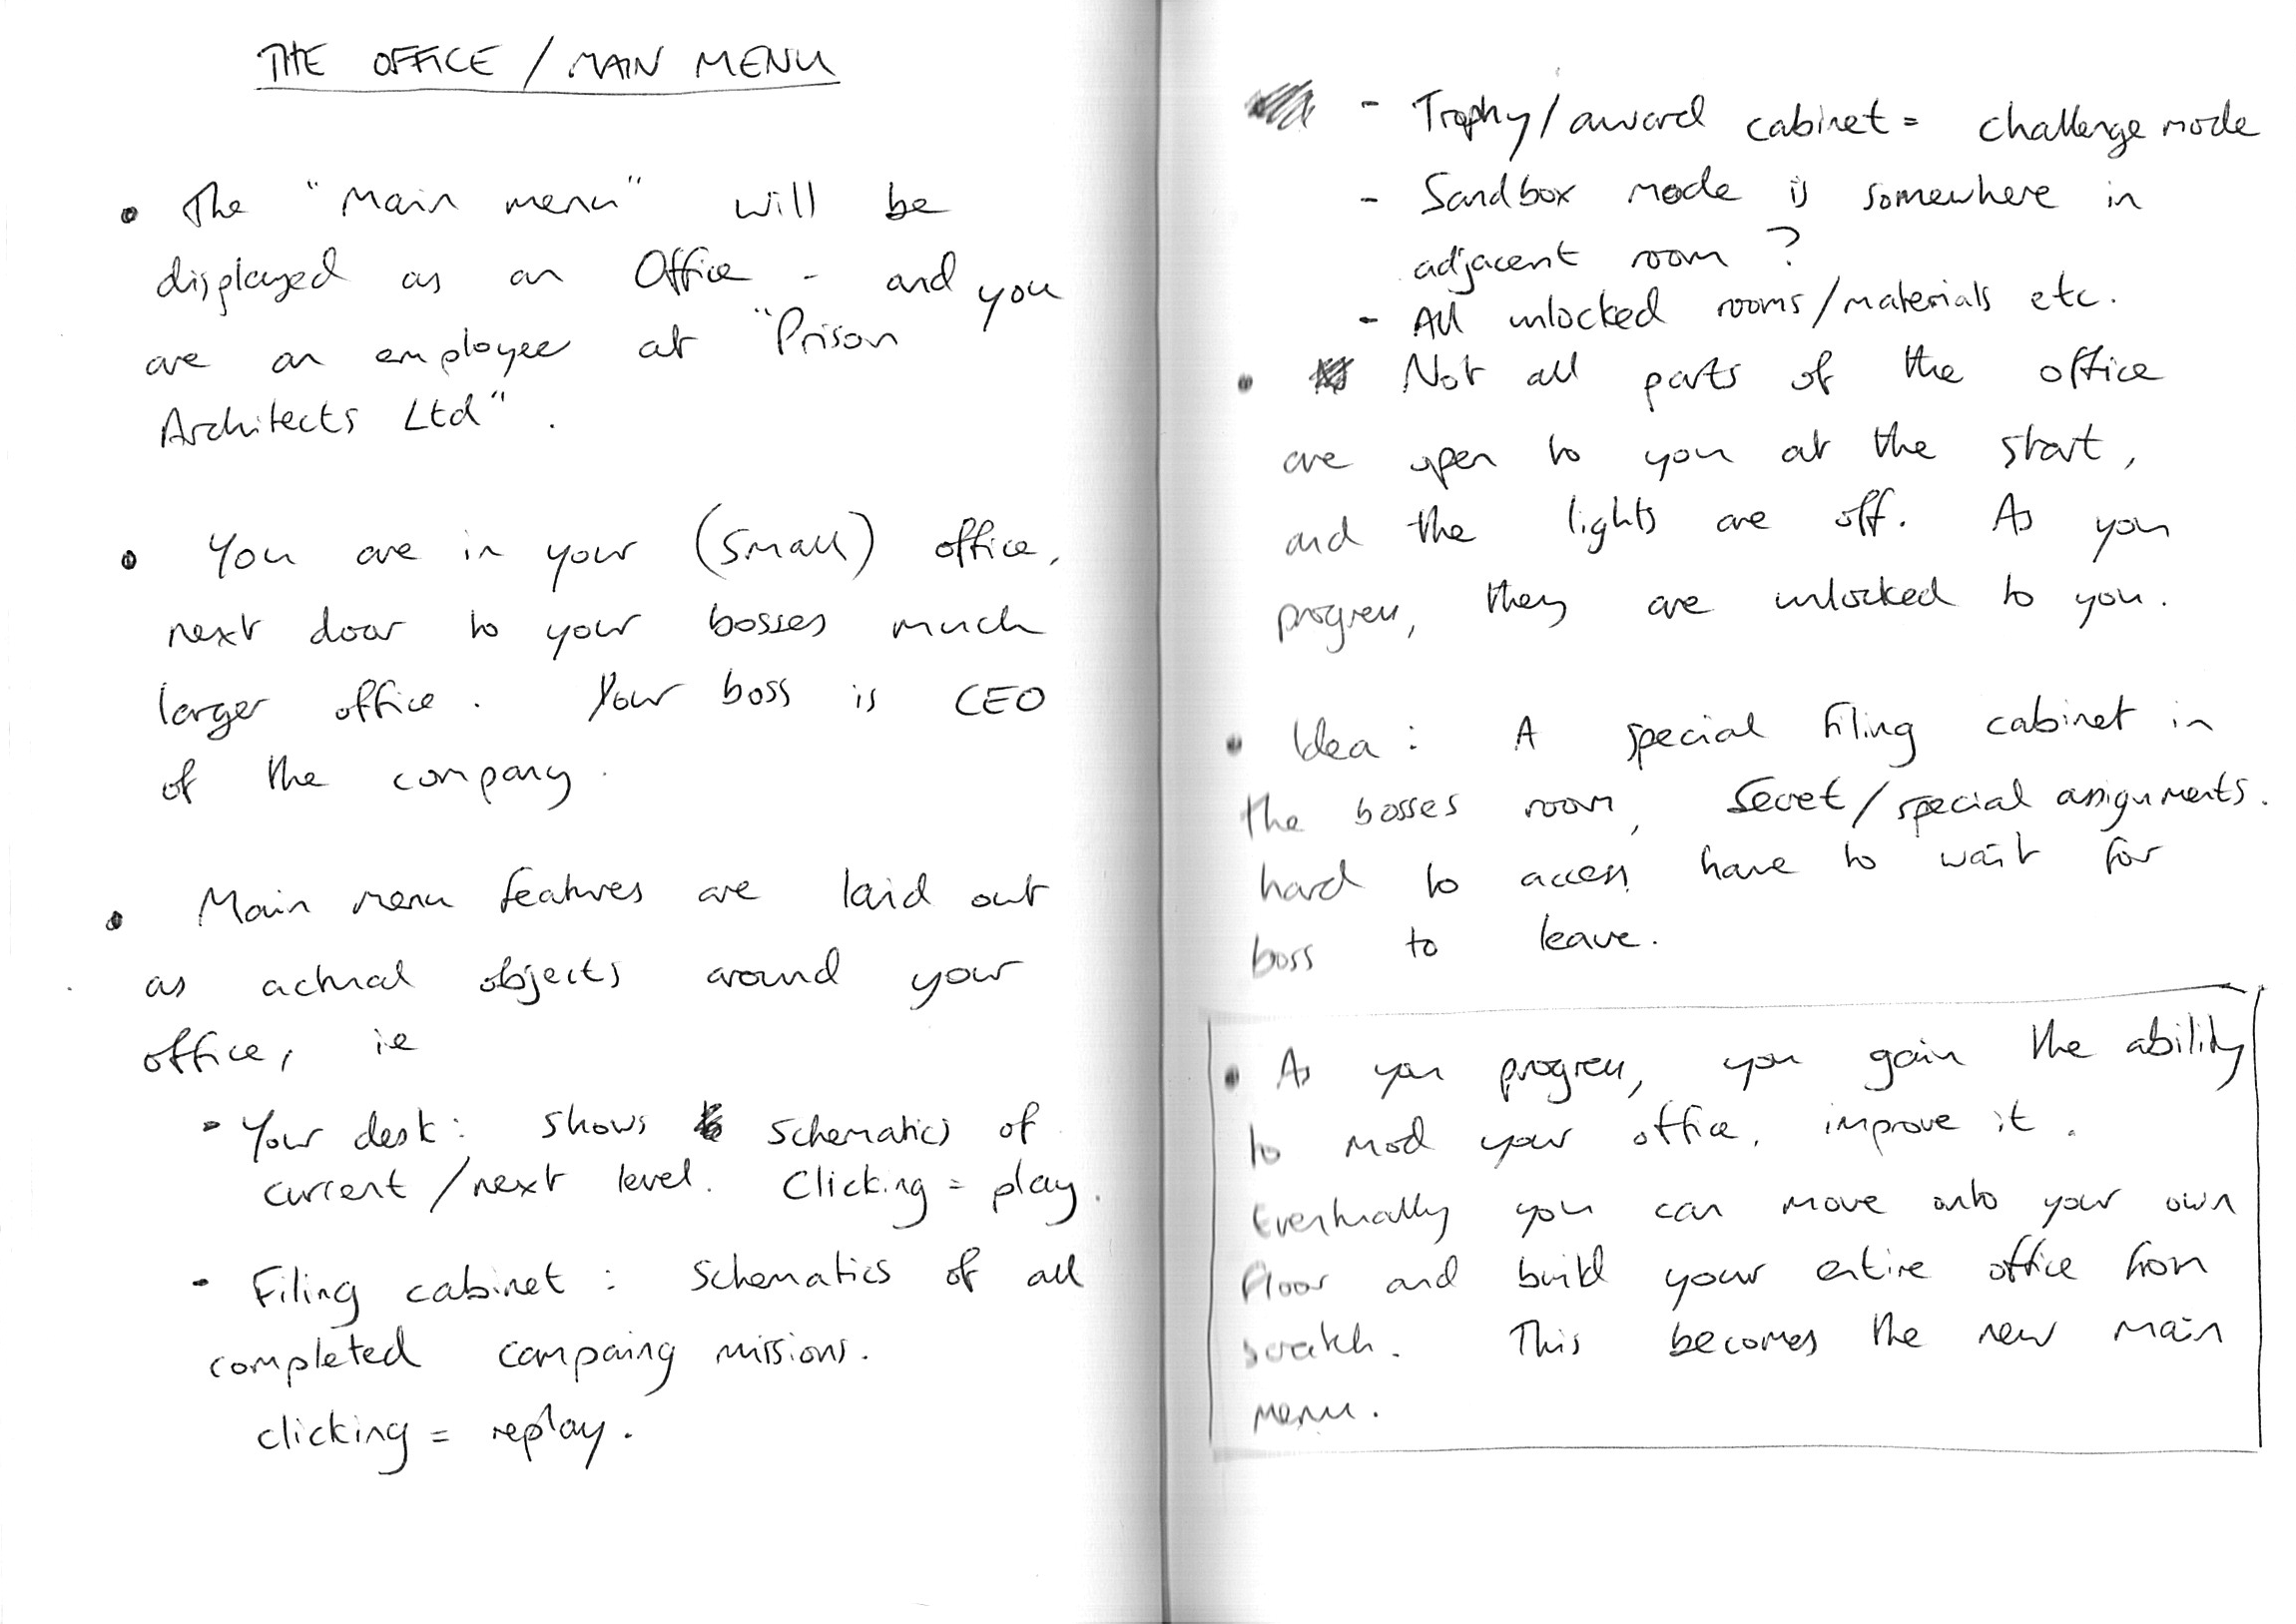 THE OFFICE / MAIN MENU
• The "Main menu" will be
displayed as an Office - and you
are an employee at "Prison
Architects Ltd".
• You are in your (small) office,
next door to your bosses much
larger office. Your boss is CEO
of the company.
• Main menu features are laid out
as actual objects around your
office, ie
- Your desk: shows schematics of
current/next level. Clicking = play.
- Filing cabinet: Schematics of all
completed campaing missions.
clicking = replay.
- Trophy/award cabinet = challenge mode
- Sandbox mode is somewhere in
adjacent room?
- All unlocked rooms/materials etc.
• Not all parts of the office
are open to you at the start,
and the lights are off. As you
progress, they are unlocked to you.
• Idea: A special filing cabinet in
the bosses room, Secret/special assignments.
hard to access, have to wait for
boss to leave.
• As you progress, you gain the ability
to mod your office, improve it.
Eventually you can move onto your own
floor and build your entire office from
scratch. This becomes the new main
menu.